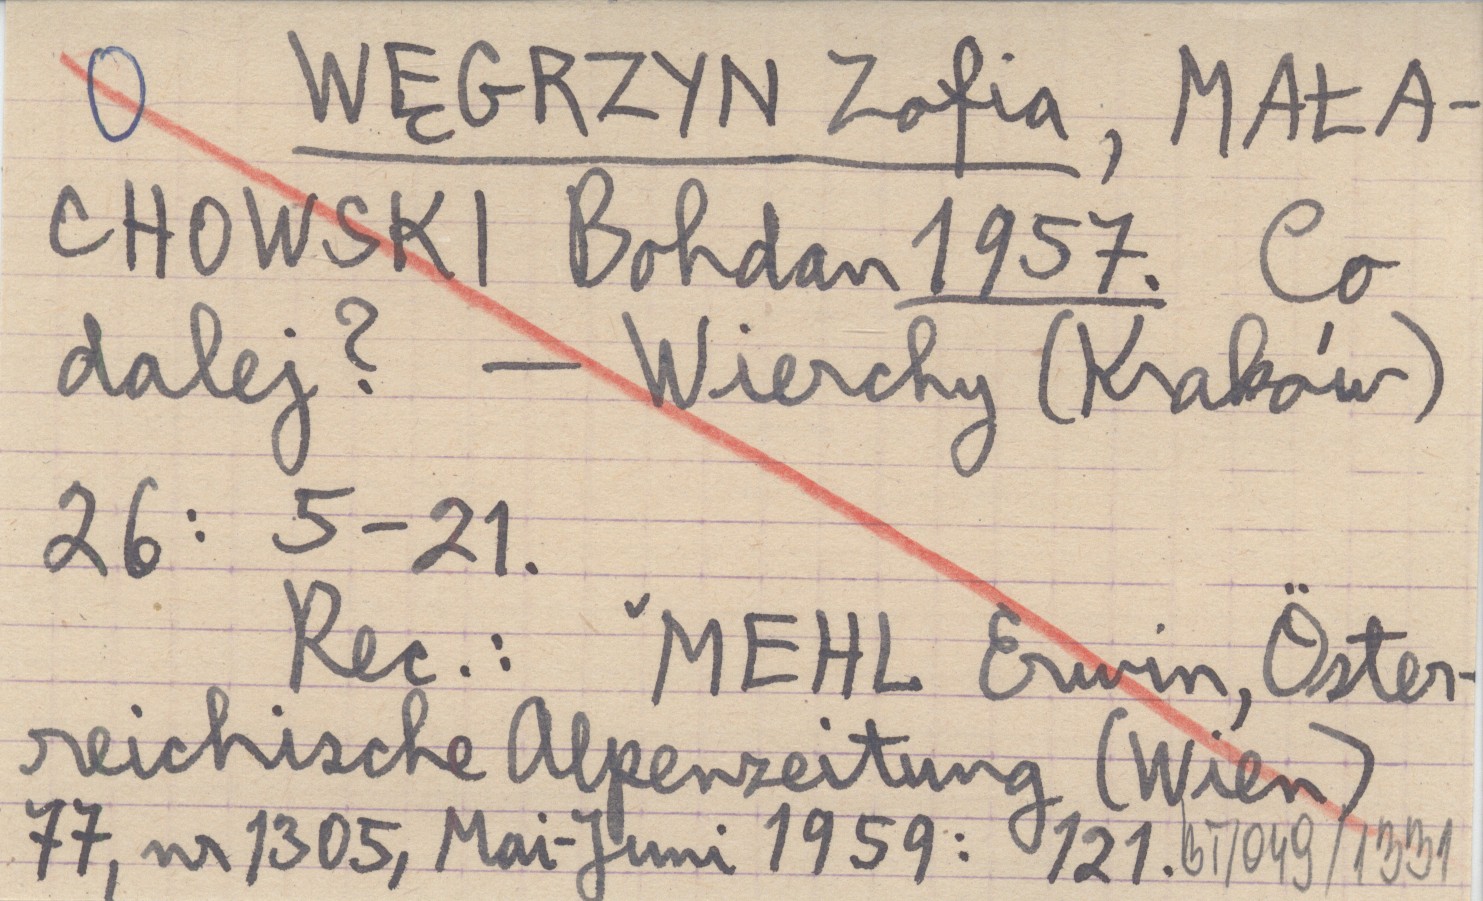 O WĘGRZYN Zofia, MAŁA-
CHOWSKI Bohdan 1957. Co
dalej? — Wierchy (Kraków)
26: 5-21.
Rec.: ˇMEHL Erwin, Öster-
reichische Alpenzeitung (Wien)
77, nr 1305, Mai-Juni 1959: 121. BT/049/1331